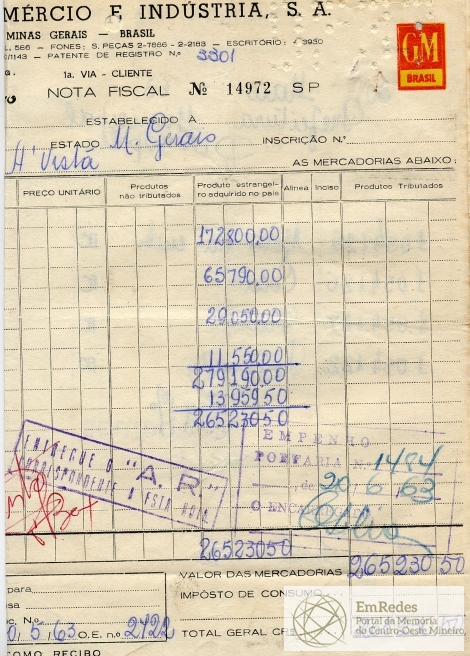 MÉRCIO E INDÚSTRIA, S. A.
MINAS GERAIS — BRASIL
L, 586 — FONES: S. PEÇAS 2-7666 - 2-2183 — ESCRITÓRIO: 4-3930
/1143 — PATENTE DE REGISTRO Nº 3301
GM
BRASIL
1a. VIA - CLIENTE
NOTA FISCAL Nº 14972 SP
ESTABELECIDO À
ESTADO M. Gerais INSCRIÇÃO N.º
A' Vista AS MERCADORIAS ABAIXO:
PREÇO UNITÁRIO Produtos não tributados Produto estrangeiro adquirido no país Alínea Inciso Produtos Tributados
172800,00
65790,00
29050,00
11550,00
279190,00
13959,50
26523050
ENTREGUE O "A. R."
CORRESPONDENTE A ESTA
EMPENHO
PORTARIA N. 1484
de 20 6 63
26523050
VALOR DAS MERCADORIAS 26523050
para
IMPÔSTO DE CONSUMO
5/63 O.E. n.º 2422
TOTAL GERAL CR$
COMO RECIBO
EmRedes
Portal da Memória
do Centro-Oeste Mineiro